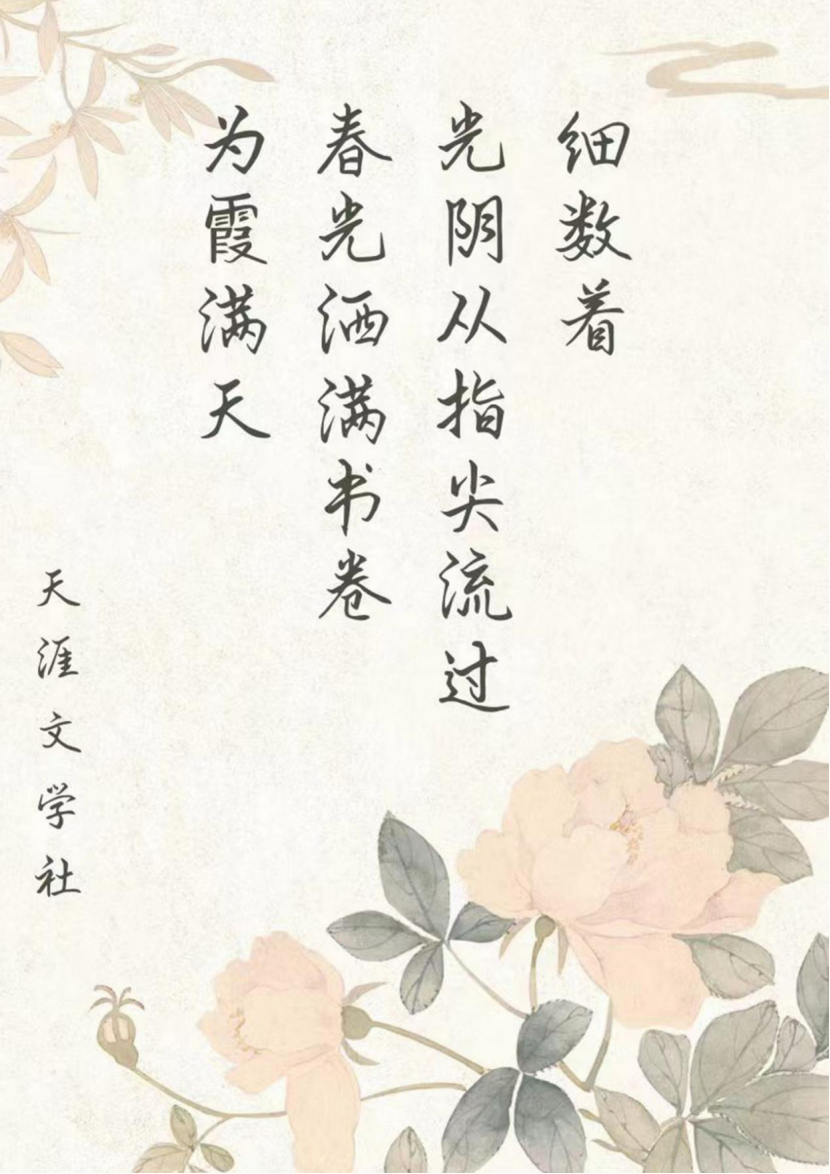 细数着
光阴从指尖流过
春光洒满书卷
为霞满天
天涯文学社